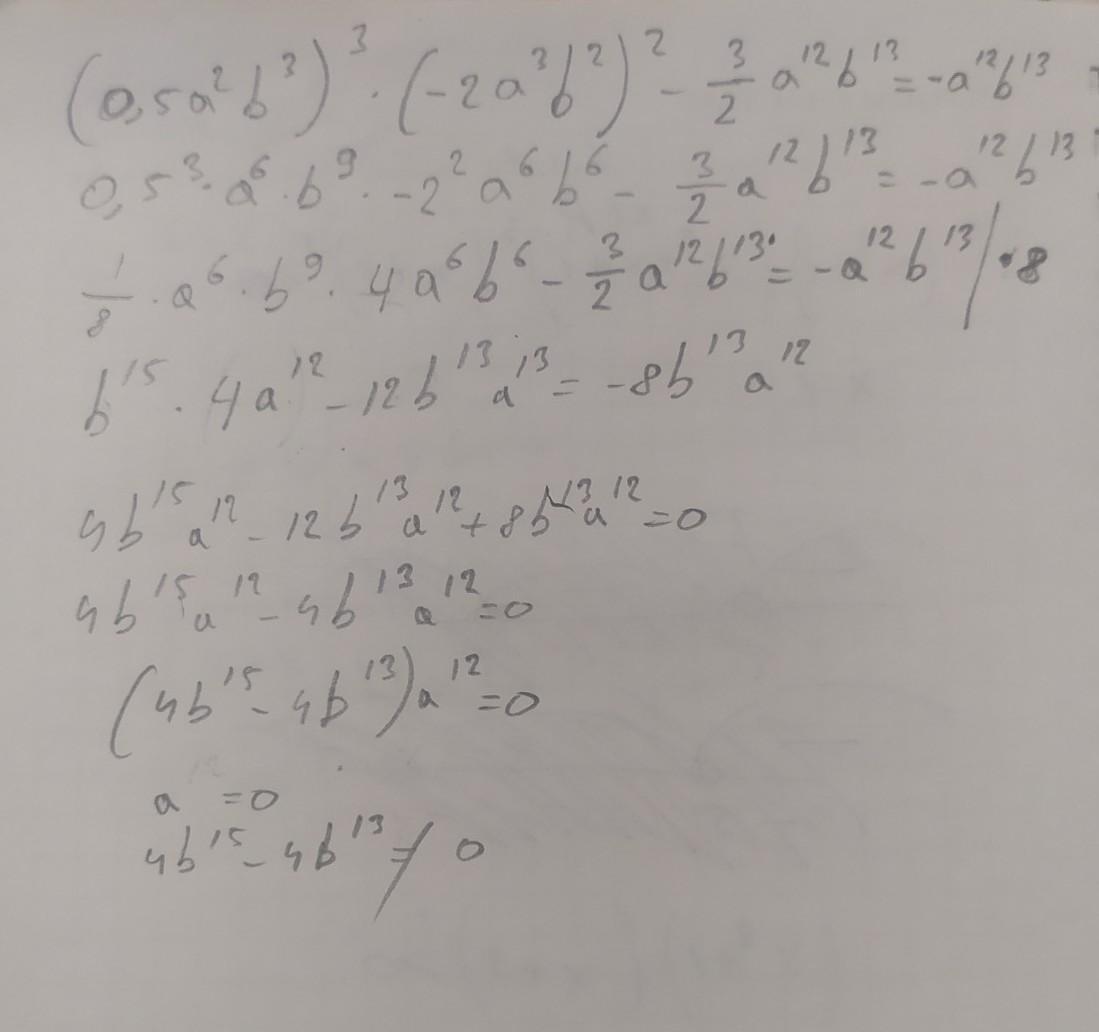 (0,5a²b³)³ · (-2a³b²)² - 3/2 a¹²b¹³ = -a¹²b¹³
0,5³· a⁶ · b⁹ · -2² a⁶ b⁶ - 3/2 a¹² b¹³ = -a¹² b¹³
1/8 · a⁶ · b⁹ · 4a⁶b⁶ - 3/2 a¹²b¹³ = -a¹²b¹³ / ·8
b¹⁵ · 4a¹² - 12b¹³ a¹³ = -8b¹³ a¹²
4b¹⁵ a¹² - 12b¹³ a¹² + 8b¹³ a¹² = 0
4b¹⁵ a¹² - 4b¹³ a¹² = 0
(4b¹⁵ - 4b¹³) a¹² = 0
a = 0
4b¹⁵ - 4b¹³ ≠ 0